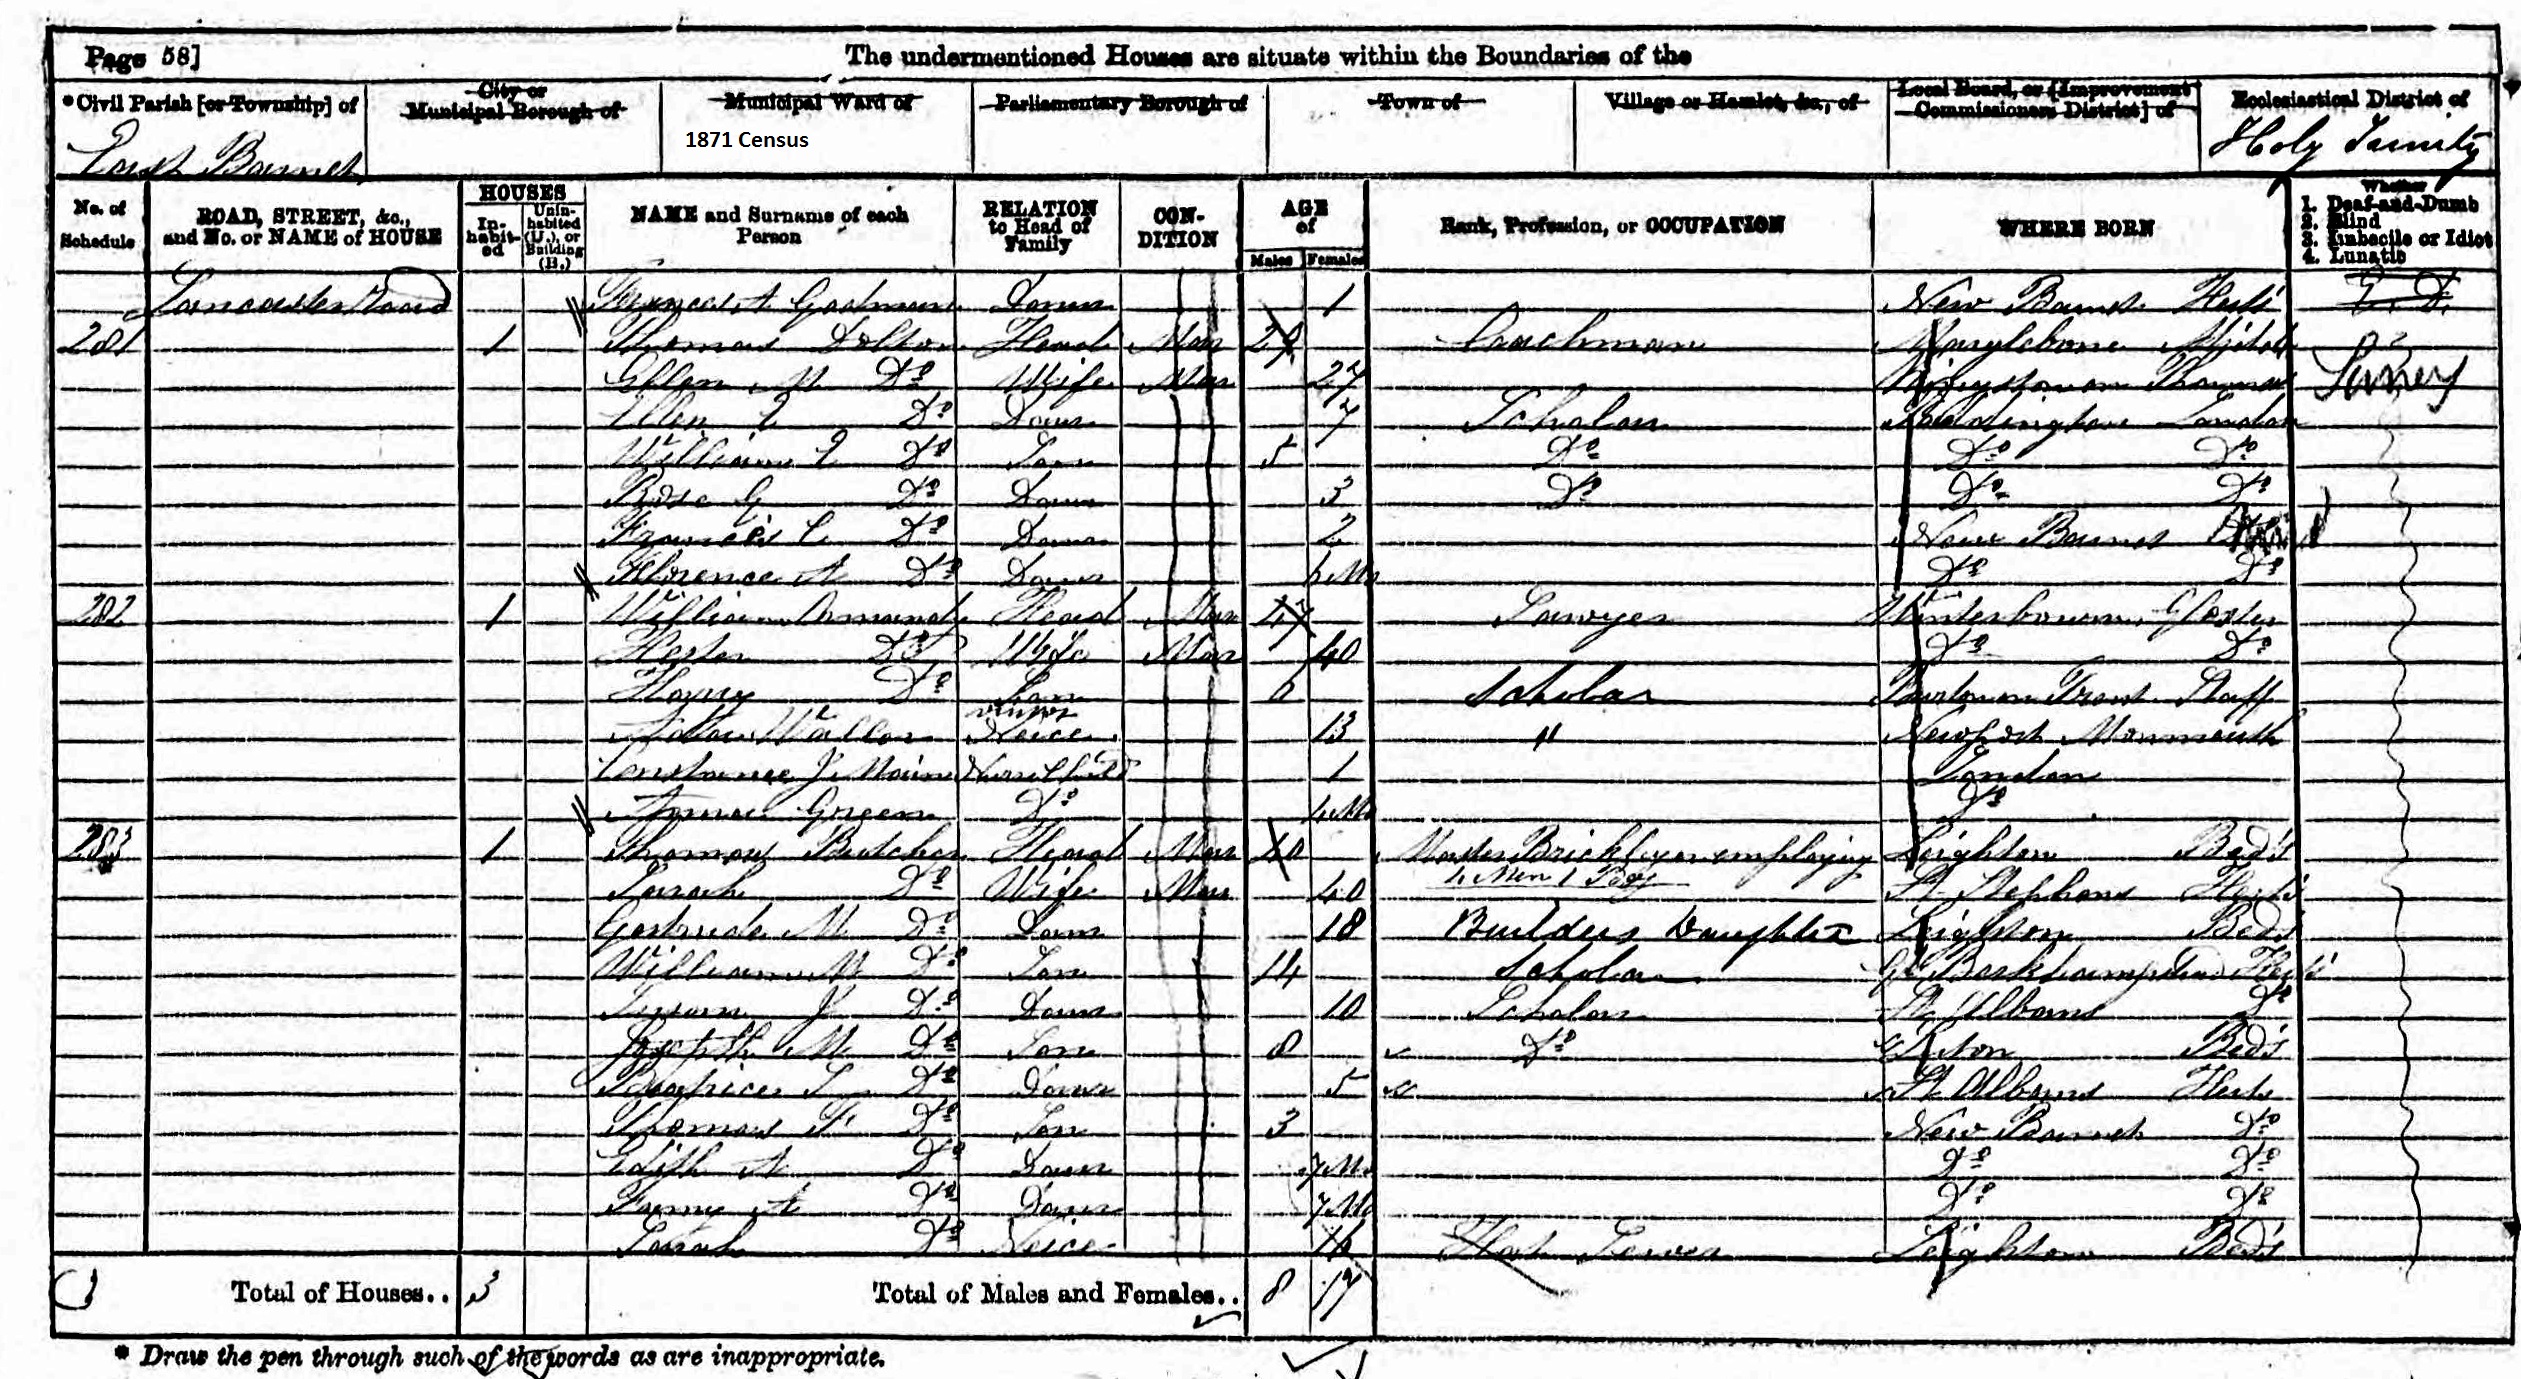 Page 58]
The undermentioned Houses are situate within the Boundaries of the
*Civil Parish [or Township] of
City or Municipal Borough of
Municipal Ward of
Parliamentary Borough of
Town of
Village or Hamlet, &c., of
Local Board, or [Improvement Commissioners District] of
Ecclesiastical District of
East Barnet
1871 Census
Holy Trinity
No. of Schedule
ROAD, STREET, &c., and No. or NAME of HOUSE
HOUSES
In-habit-ed
Unin-habited (U.), or Building (B.)
NAME and Surname of each Person
RELATION to Head of Family
CON-DITION
AGE of
Males
Females
Rank, Profession, or OCCUPATION
WHERE BORN
Whether
1. Deaf-and-Dumb
2. Blind
3. Imbecile or Idiot
4. Lunatic
Lancaster Road Frances A Daur 1 New Barnet Herts
281 1 Thomas Dolton Head Mar 29 Coachman Marylebone
Ellen M Do Wife Mar 27 Kingston on Thames Surrey
Ellen Do Daur 7 Scholar Paddington London
William Do Son 5 Do Do Do
Rose G Do Daur 3 Do Do Do
Frances C Do Daur 2 New Barnet
Florence A Do Daur Do Do
282 1 William Head Mar 47 Sawyer Winterbourn Gloster
Hester Do Wife Mar 40 Do Do
Harry Do Son 8 Scholar Staff
Niece 13 " Newport Monmouth
Constance J Nurse Child 1 London
Green Do 4 Mo Do
283 1 Thomas Butcher Head Mar 40 Master Bricklayer employing Leighton Beds
4 Men 1 Boy
Sarah Do Wife Mar 40 St Stephens Herts
Gertrude M Do Daur 18 Builders Daughter Leighton Beds
William M Do Son 14 Scholar Gt Berkhampstead Herts
Susan J Do Daur 10 Scholar St Albans Do
Joseph M Do Son 8 Do Luton Beds
Beatrice Do Daur 5 St Albans Herts
Thomas F Do Son 3 New Barnet Do
Edith A Do Daur 7 Mo Do Do
Fanny A Do Daur 7 Mo Do Do
Sarah Do Neice 16 Hat Sewer Leighton Beds
Total of Houses.. 3
Total of Males and Females.. 8 17
* Draw the pen through such of the words as are inappropriate.